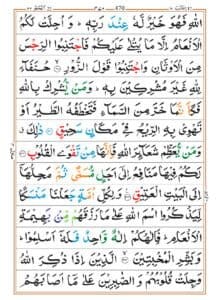 اللهِ فَهُوَ خَيْرٌ لَّهٗ عِنْدَ رَبِّهٖ ؕ وَ اُحِلَّتْ لَكُمُ
الْاَنْعَامُ اِلَّا مَا يُتْلٰى عَلَيْكُمْ فَاجْتَنِبُوا الرِّجْسَ
مِنَ الْاَوْثَانِ وَاجْتَنِبُوْا قَوْلَ الزُّوْرِ ۙ حُنَفَآءَ
لِلّٰهِ غَيْرَ مُشْرِكِيْنَ بِهٖ ؕ وَمَنْ يُّشْرِكْ بِاللهِ
فَكَاَنَّمَا خَرَّ مِنَ السَّمَآءِ فَتَخْطَفُهُ الطَّيْرُ اَوْ
تَهْوِيْ بِهِ الرِّيْحُ فِيْ مَكَانٍ سَحِيْقٍ ذٰلِكَ
وَمَنْ يُّعَظِّمْ شَعَآئِرَ اللهِ فَاِنَّهَا مِنْ تَقْوَى الْقُلُوْبِ
لَكُمْ فِيْهَا مَنَافِعُ اِلٰٓى اَجَلٍ مُّسَمًّى ثُمَّ مَحِلُّهَآ
اِلَى الْبَيْتِ الْعَتِيْقِ وَلِكُلِّ اُمَّةٍ جَعَلْنَا مَنْسَكًا
لِّيَذْكُرُوا اسْمَ اللهِ عَلٰى مَا رَزَقَهُمْ مِّنْۢ بَهِيْمَةِ
الْاَنْعَامِ ؕ فَاِلٰهُكُمْ اِلٰهٌ وَّاحِدٌ فَلَهٗٓ اَسْلِمُوْا ؕ
وَبَشِّرِ الْمُخْبِتِيْنَ الَّذِيْنَ اِذَا ذُكِرَ اللهُ
وَجِلَتْ قُلُوْبُهُمْ وَالصّٰبِرِيْنَ عَلٰى مَآ اَصَابَهُمْ